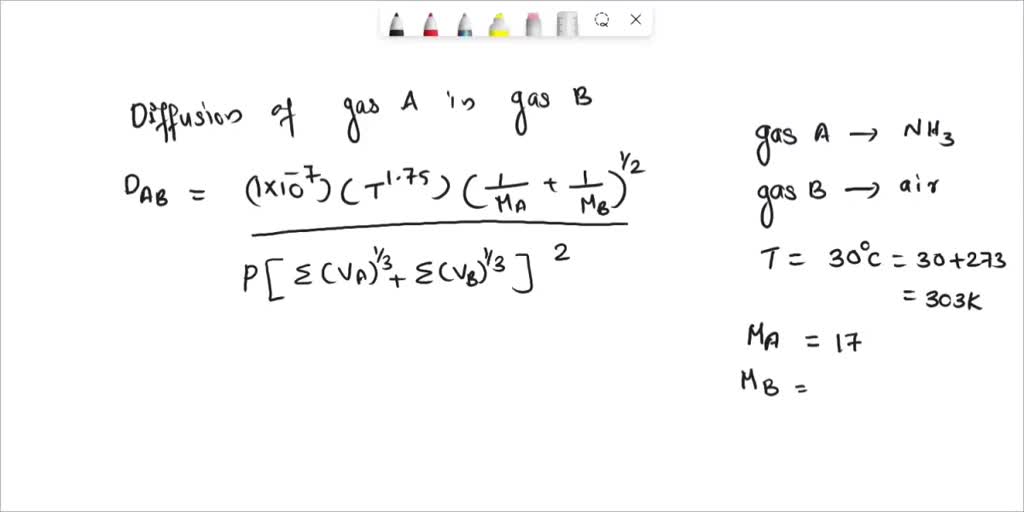 Diffusion of gas A in gas B
D_AB = (1×10^-7) (T^1.75) (1/M_A + 1/M_B)^1/2
P[Σ(V_A)^1/3 + Σ(V_B)^1/3]^2
gas A → NH3
gas B → air
T = 30°C = 30+273
= 303K
M_A = 17
M_B =